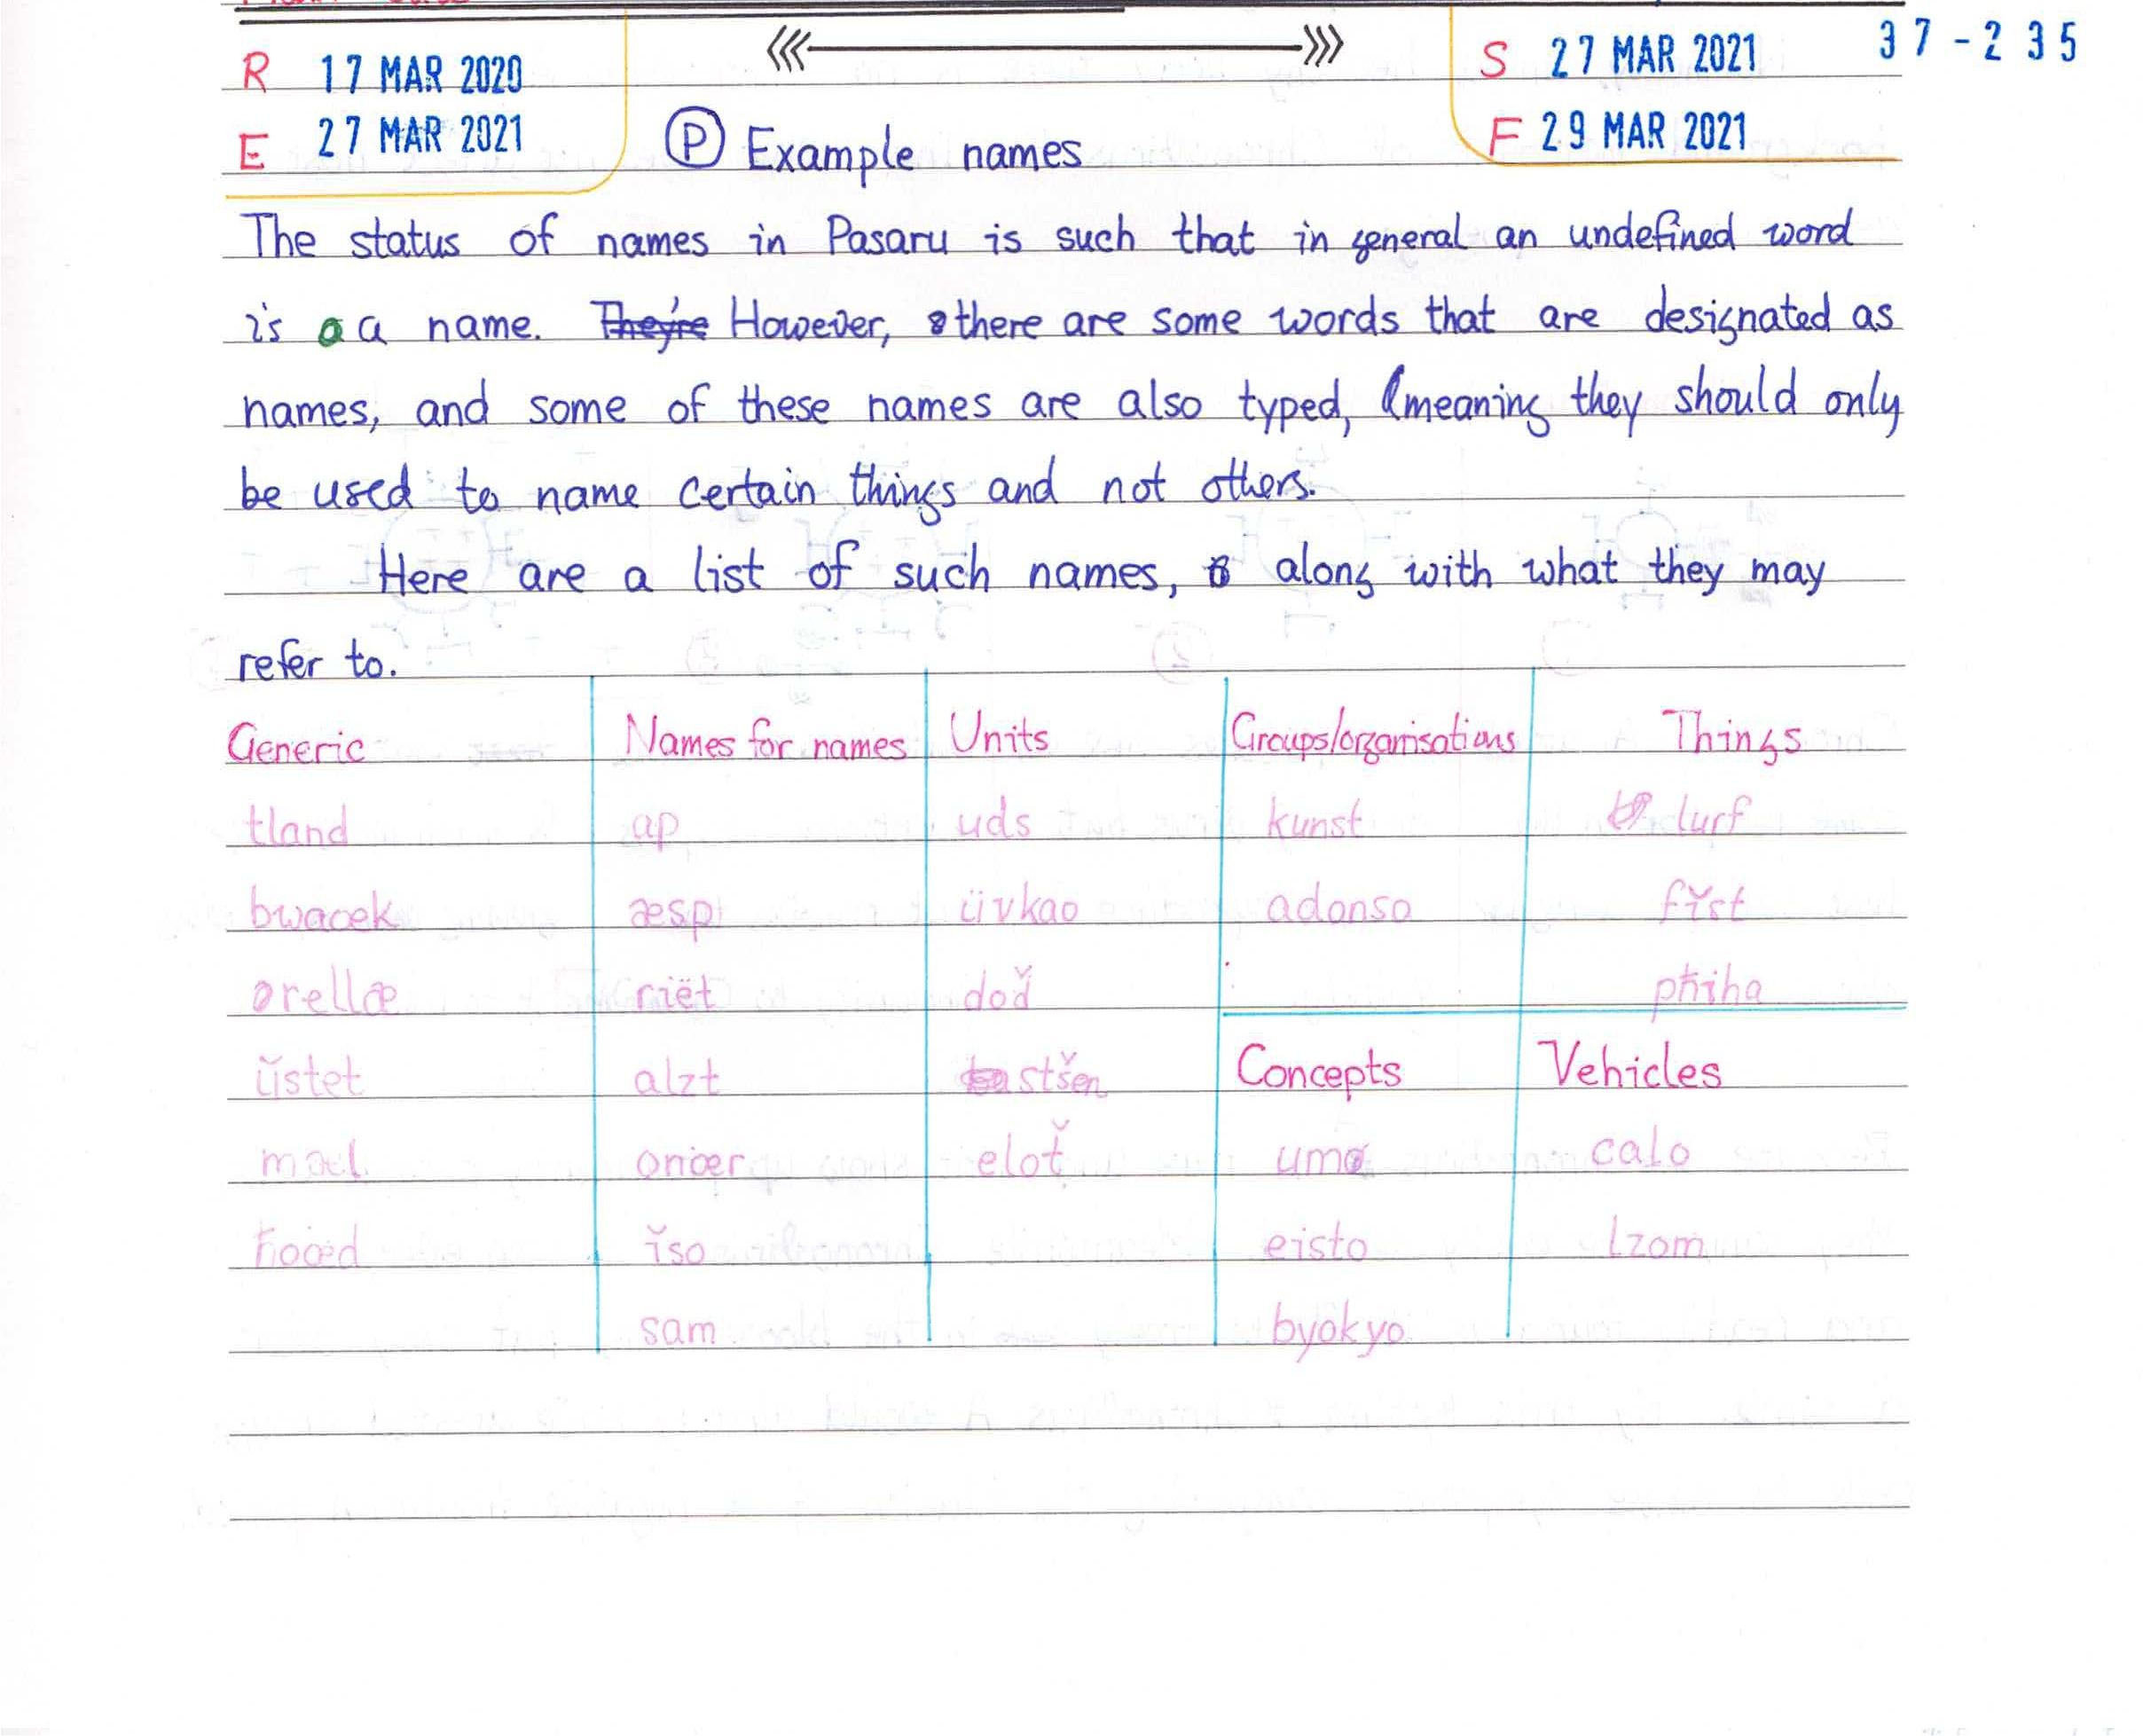 R 17 MAR 2020
E 27 MAR 2021
S 27 MAR 2021
F 29 MAR 2021
37-235
Ⓟ Example names
The status of names in Pasaru is such that in general an undefined word
is a a name. They're However, there are some words that are designated as
names, and some of these names are also typed, (meaning they should only
be used to name certain things and not others.
Here are a list of such names, along with what they may
refer to.
Generic Names for names Units Groups/organisations Things
tland ap uds kunst lurf
bwacek æsp üvkao adonso fǐst
ørellæ riët doď přiha
ǔstet alzt stšen Concepts Vehicles
mael onœr eloť umø calo
ǐso eisto lzom
sam byokyo